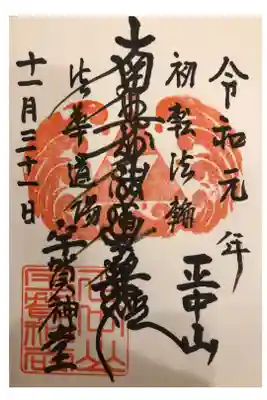 令和元年
正中山
初転法輪
南無妙法蓮華経
法華道場
宇賀神堂
十一月二十一日